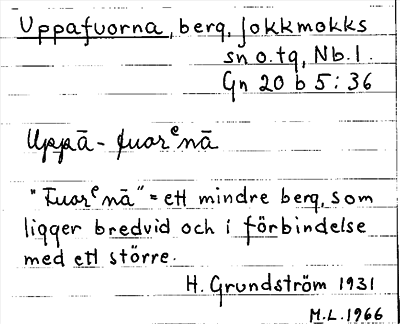 Uppafuorna, berg, Jokkmokks
sn o. tg, Nb. l.
Gn 20 b 5:36
Uppā-fuorᵉnā
"Fuorᵉnā" = ett mindre berg, som
ligger bredvid och i förbindelse
med ett större.
H. Grundström 1931
M.L. 1966